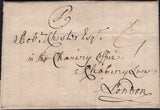 Robt Chester Esqr
in the Chancery Office
Chancery Lane
London